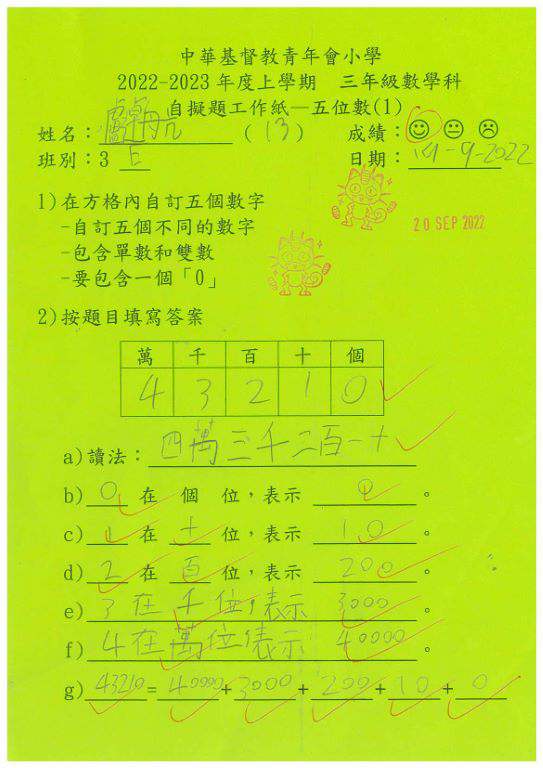 中華基督教青年會小學
2022-2023 年度上學期 三年級數學科
自擬題工作紙—五位數(1)
姓名： (13) 成績：
班別：3 日期：14-9-2022
20 SEP 2022
1)在方格內自訂五個數字
-自訂五個不同的數字
-包含單數和雙數
-要包含一個「0」
2)按題目填寫答案
萬 千 百 十 個
4 3 2 1 0
a)讀法：四萬三千二百一十
b) 0 在 個 位，表示 0 。
c) 1 在 十 位，表示 10 。
d) 2 在 百 位，表示 200 。
e) 3在千位，表示 3000 。
f) 4在萬位，表示 40000 。
g) 43210=40000+3000+200+10+0